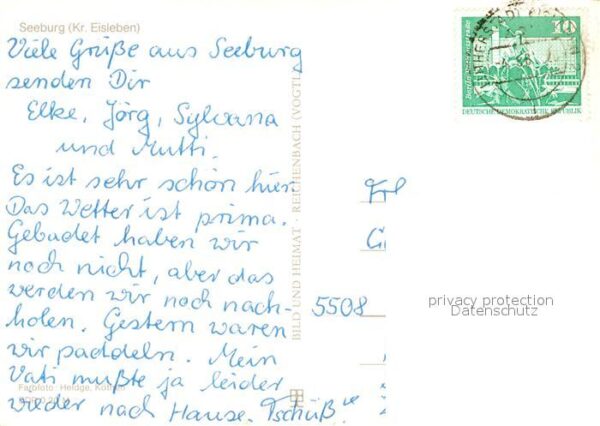 Seeburg (Kr. Eisleben)
Viele Grüße aus Seeburg
senden Dir
Elke, Jörg, Sylvana
und Mutti.
Es ist sehr schön hier.
Das Wetter ist prima.
Gebadet haben wir
noch nicht, aber das
werden wir noch nach-
holen. Gestern waren
wir paddeln. Mein
Vati mußte ja leider
wieder nach Hause. Tschüß
Farbfoto: Heldge, Köthen
BILD UND HEIMAT · REICHENBACH (VOGTL
10
DEUTSCHE DEMOKRATISCHE REPUBLIK
5508
privacy protection
Datenschutz